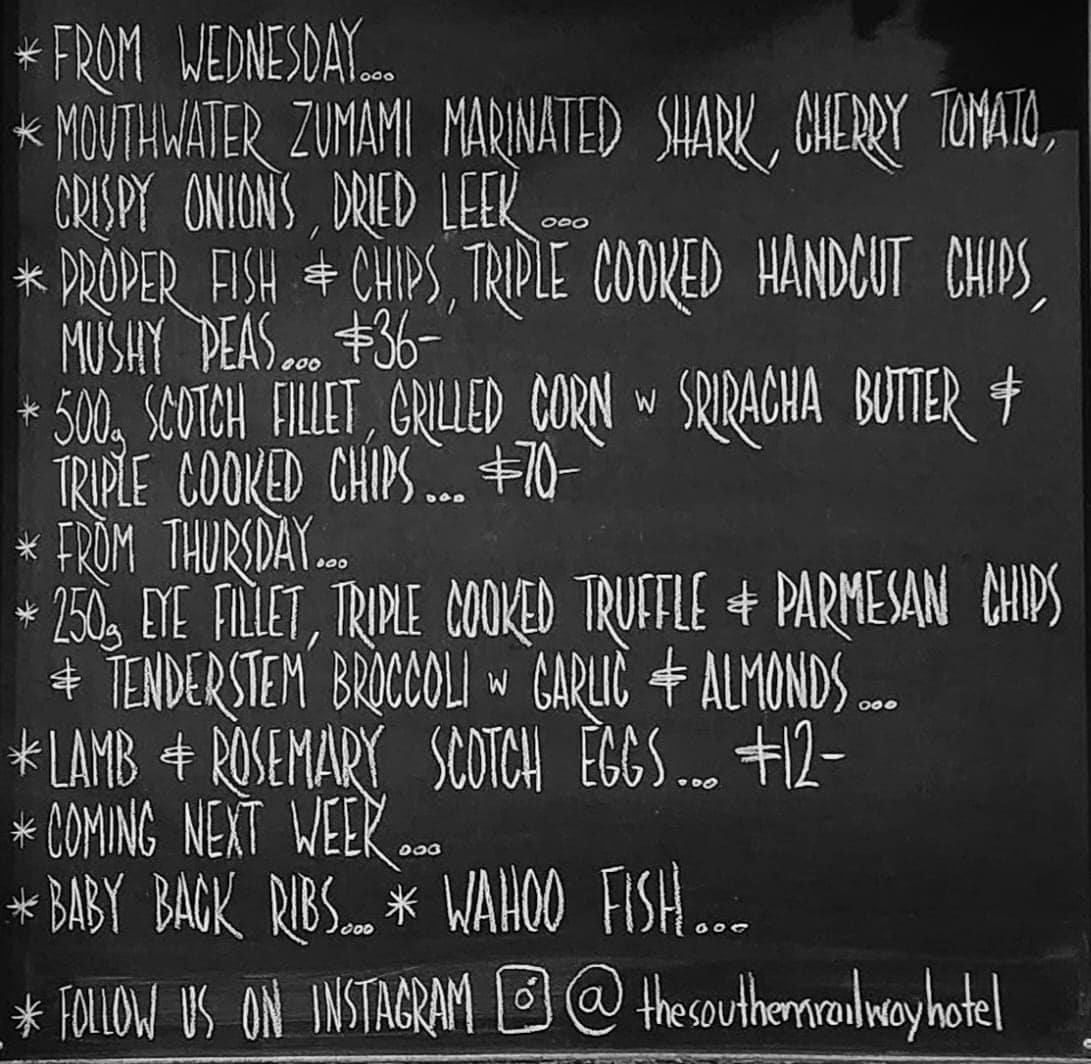 * FROM WEDNESDAY...
* MOUTHWATER ZUMAMI MARINATED SHARK, CHERRY TOMATO,
CRISPY ONIONS, DRIED LEEK ...
* PROPER FISH & CHIPS, TRIPLE COOKED HANDCUT CHIPS,
MUSHY PEAS... $36-
* 500g SCOTCH FILLET, GRILLED CORN w SRIRACHA BUTTER &
TRIPLE COOKED CHIPS... $70-
* FROM THURSDAY...
* 250g EYE FILLET, TRIPLE COOKED TRUFFLE & PARMESAN CHIPS
& TENDERSTEM BROCCOLI w GARLIC & ALMONDS...
* LAMB & ROSEMARY SCOTCH EGGS... $12-
* COMING NEXT WEEK...
* BABY BACK RIBS... * WAHOO FISH...
* FOLLOW US ON INSTAGRAM @thesouthernrailwayhotel